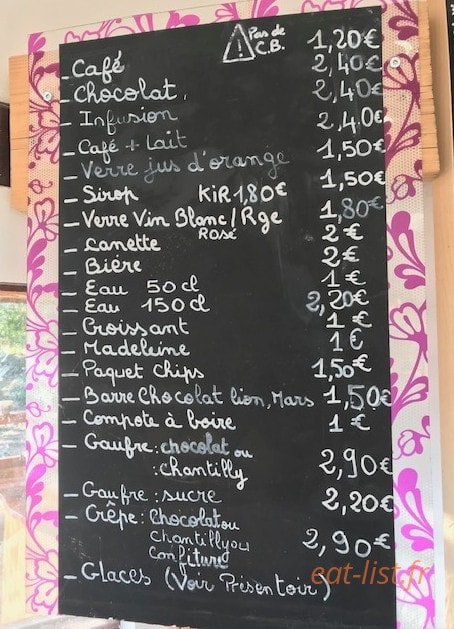 ⚠ Pas de C.B.
_ Café 1,20€
_ Chocolat, 2,40€
_ Infusion 2,40€
_ Café + Lait 2,40€
_ Verre jus d'orange 1,50€
_ Sirop KiR 1,80€ 1,50€
_ Verre Vin Blanc / Rge 1,80€
ROSÉ
_ Canette 2€
_ Bière 2€
_ Eau 50 cl 1€
_ Eau 150 cl 2,20€
_ Croissant 1€
_ Madeleine 1€
_ Paquet chips 1,50€
_ Barre Chocolat lion, Mars 1,50€
_ Compote à boire 1€
_ Gaufre : chocolat ou
: chantilly 2,90€
_ Gaufre : sucre 2,20€
_ Crêpe : Chocolat ou
Chantilly ou 2,90€
Confiture
_ Glaces (Voir Présentoir)
eat-list.fr